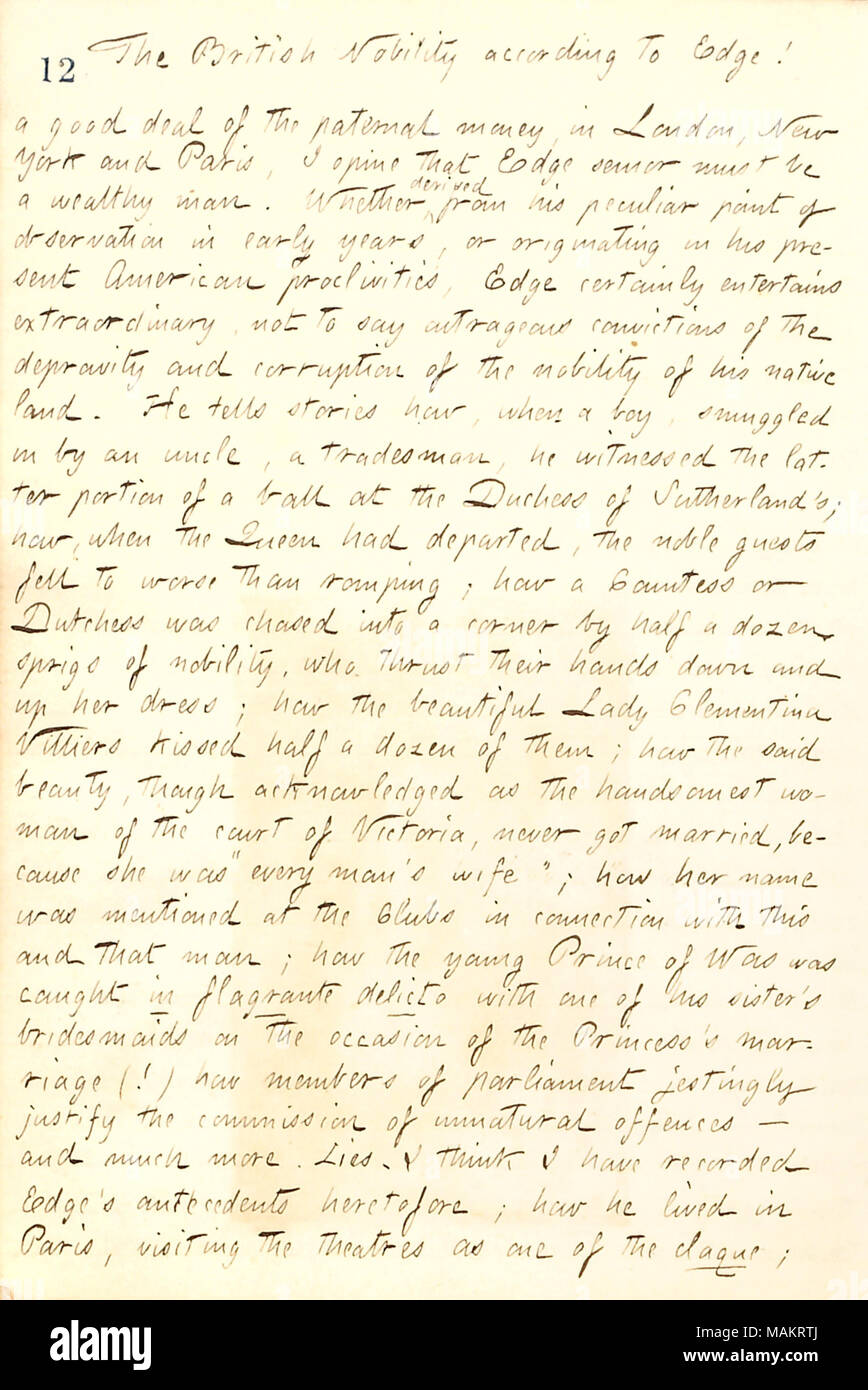 The British Nobility according to Edge!
12
a good deal of the paternal money, in London, New
York and Paris, I opine that Edge senior must be
a wealthy man. Whether derived from his peculiar point of
observation in early years, or originating in his pre-
sent American proclivities, Edge certainly entertains
extraordinary, not to say outrageous convictions of the
depravity and corruption of the nobility of his native
land. He tells stories how, when a boy, smuggled
in by an uncle, a tradesman, he witnessed the lat-
ter portion of a ball at the Duchess of Sutherland's;
how, when the Queen had departed, the noble guests
fell to worse than romping; how a Countess or
Dutchess was chased into a corner by half a dozen
sprigs of nobility, who thrust their hands down and
up her dress; how the beautiful Lady Clementina
Villiers kissed half a dozen of them; how the said
beauty, though acknowledged as the handsomest wo-
man of the court of Victoria, never got married, be-
cause she was "every man's wife"; how her name
was mentioned at the Clubs in connection with this
and that man; how the young Prince of Was was
caught in flagrante delicto with one of his sister's
bridesmaids on the occasion of the Princess's mar-
riage (!) how members of parliament jestingly
justify the commission of unnatural offences —
and much more. Lies. I think I have recorded
Edge's antecedents heretofore; how he lived in
Paris, visiting the theatres as one of the claque;
alamy
Image ID: MAKRTJ
www.alamy.com